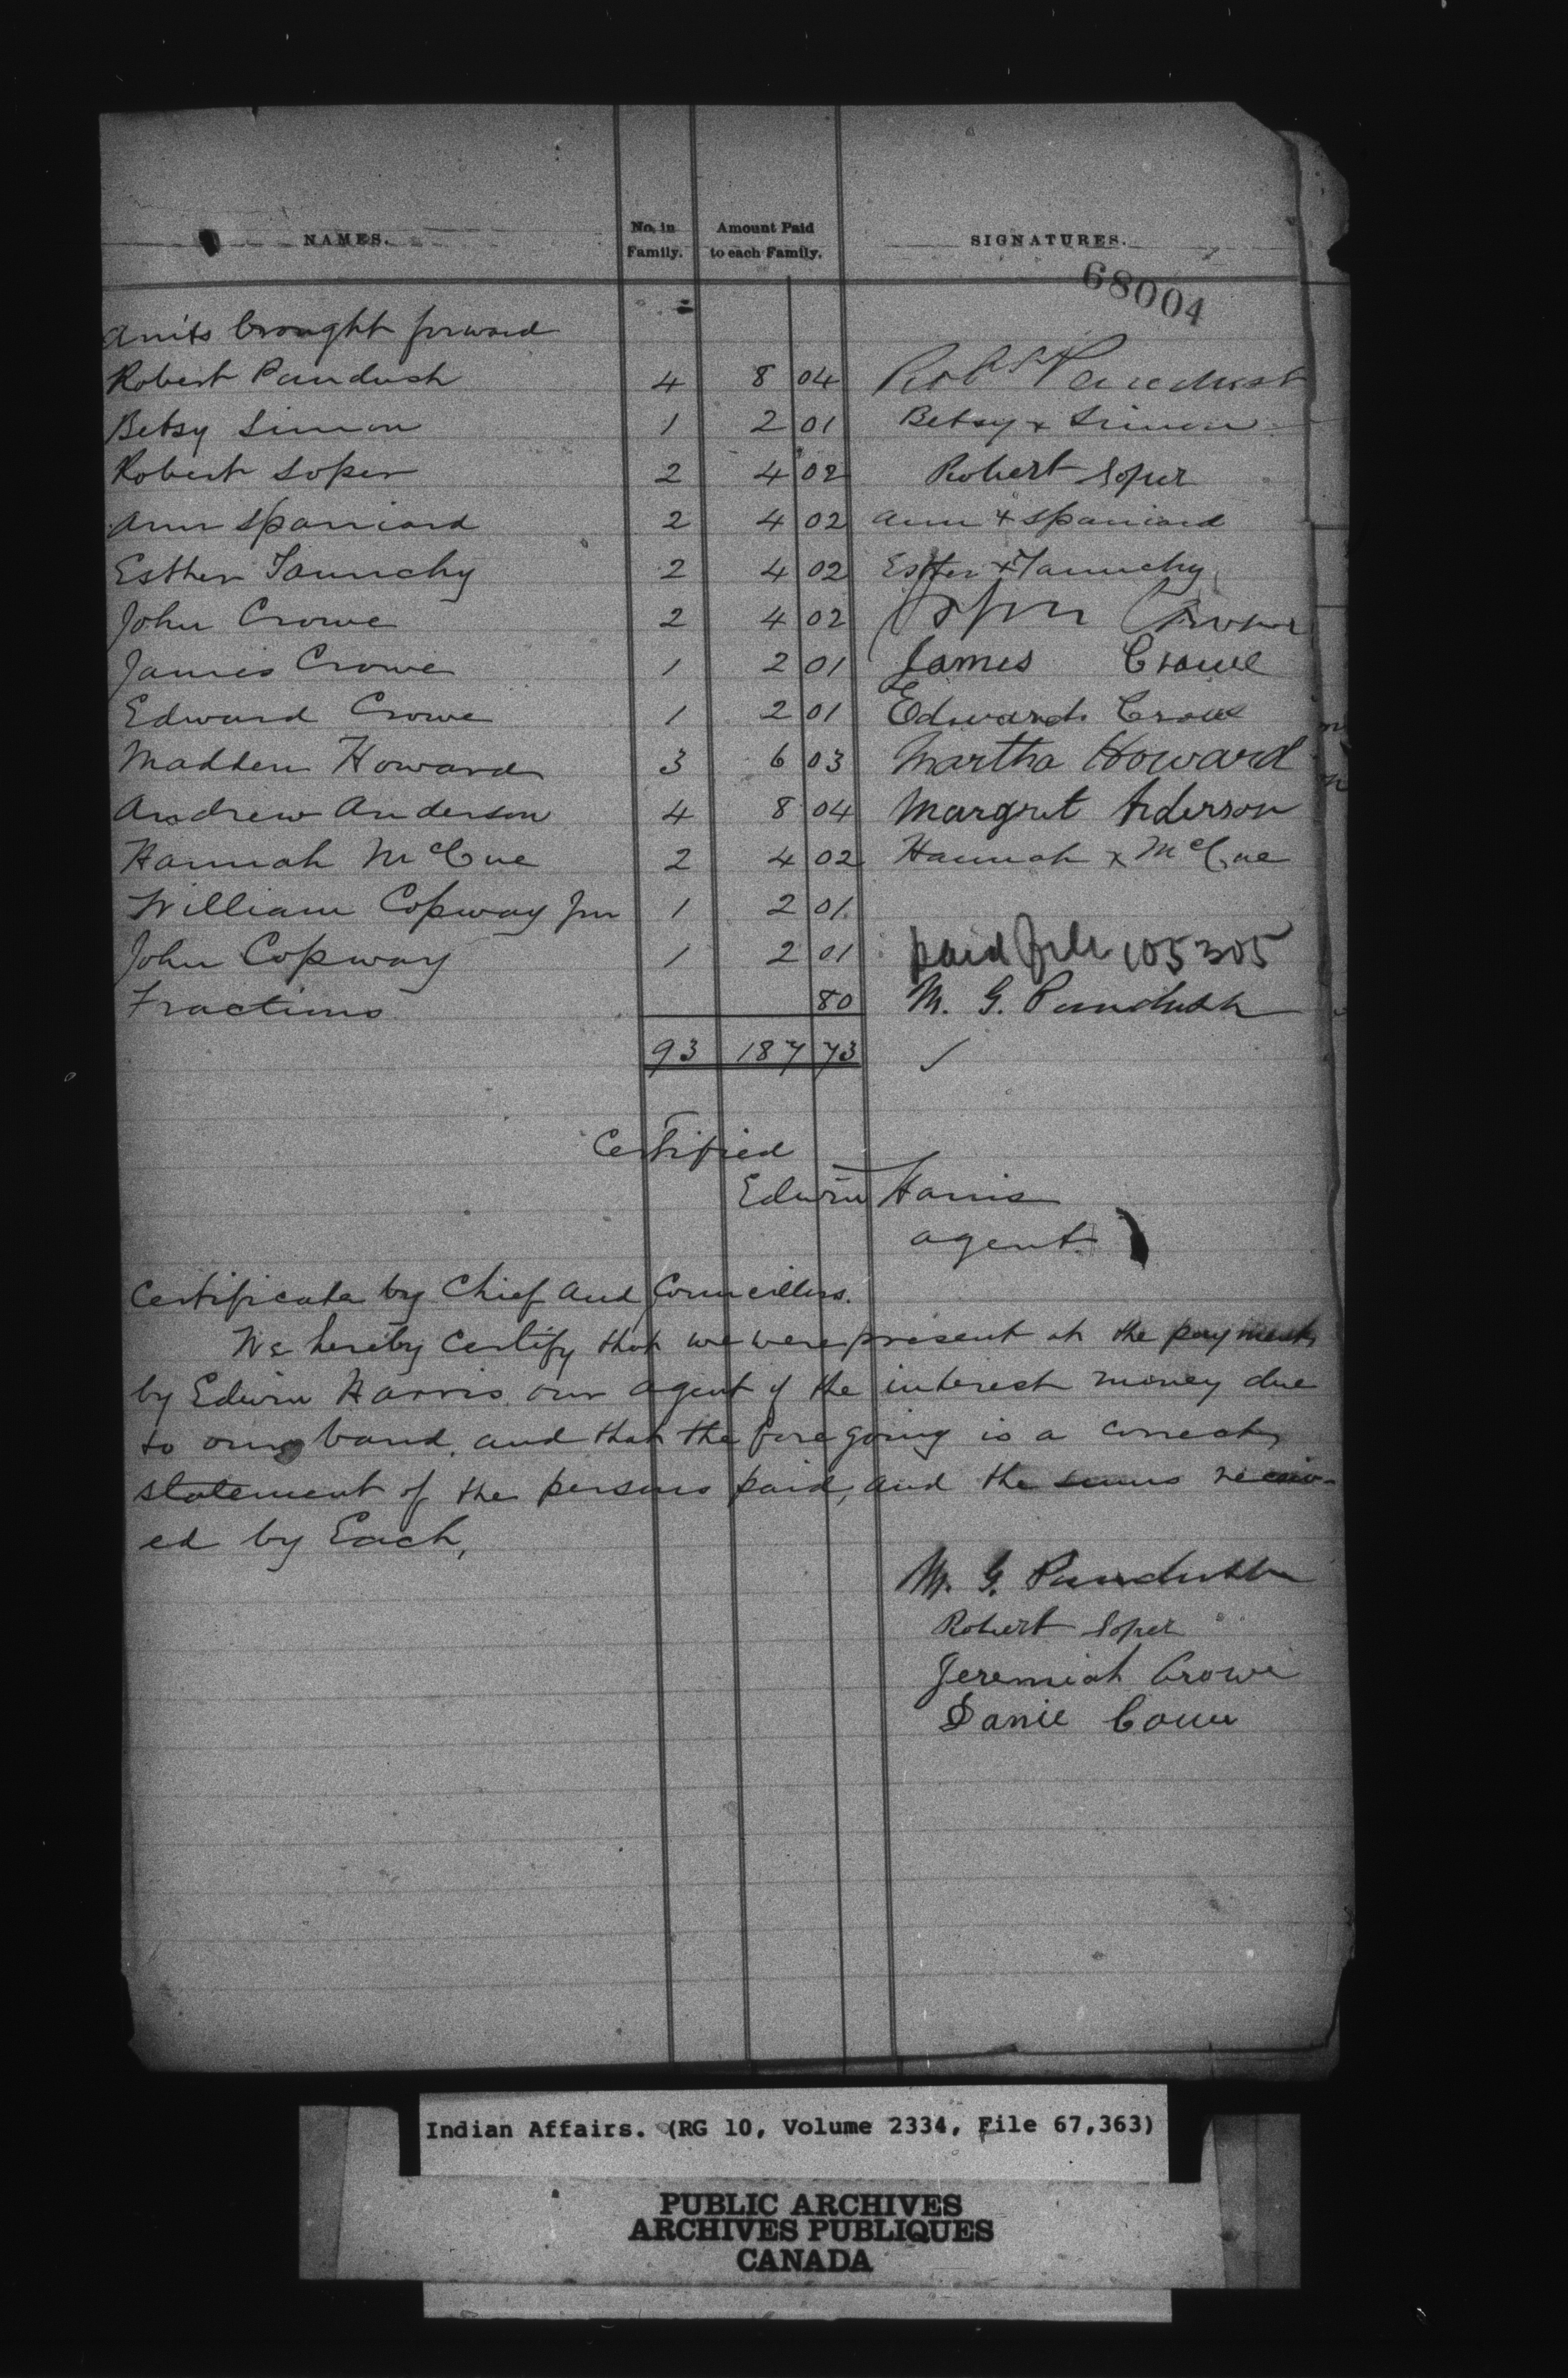 NAMES. No. in Family. Amount Paid to each Family. SIGNATURES.
68004
Am'ts brought forward
Robert Paudush 4 8 04 Robt Paudush
Betsy Simon 1 2 01 Betsy x Simon
Robert Soper 2 4 02 Robert Soper
Ann Spaniard 2 4 02 Ann x Spaniard
Esther Taunchy 2 4 02 Esther x Taunchy
John Crowe 2 4 02 John Crowe
James Crowe 1 2 01 James Crowe
Edward Crowe 1 2 01 Edward Crowe
Madden Howard 3 6 03 Martha Howard
Andrew Anderson 4 8 04 Margret Anderson
Hannah McCue 2 4 02 Hannah x McCue
William Copway Jnr 1 2 01
John Copway 1 2 01 paid file 105305
Fractions 80 M. G. Paudush
93 187 73 ✓
Certified
Edwin Harris
agent
Certificate by Chief and Councillors.
We hereby Certify that we were present at the payment
by Edwin Harris our agent of the interest money due
to our band, and that the fore going is a correct
statement of the persons paid, and the sums receiv-
ed by Each,
M. G. Paudush
Robert Soper
Jeremiah Crowe
Indian Affairs. (RG 10, Volume 2334, File 67,363)
PUBLIC ARCHIVES
ARCHIVES PUBLIQUES
CANADA